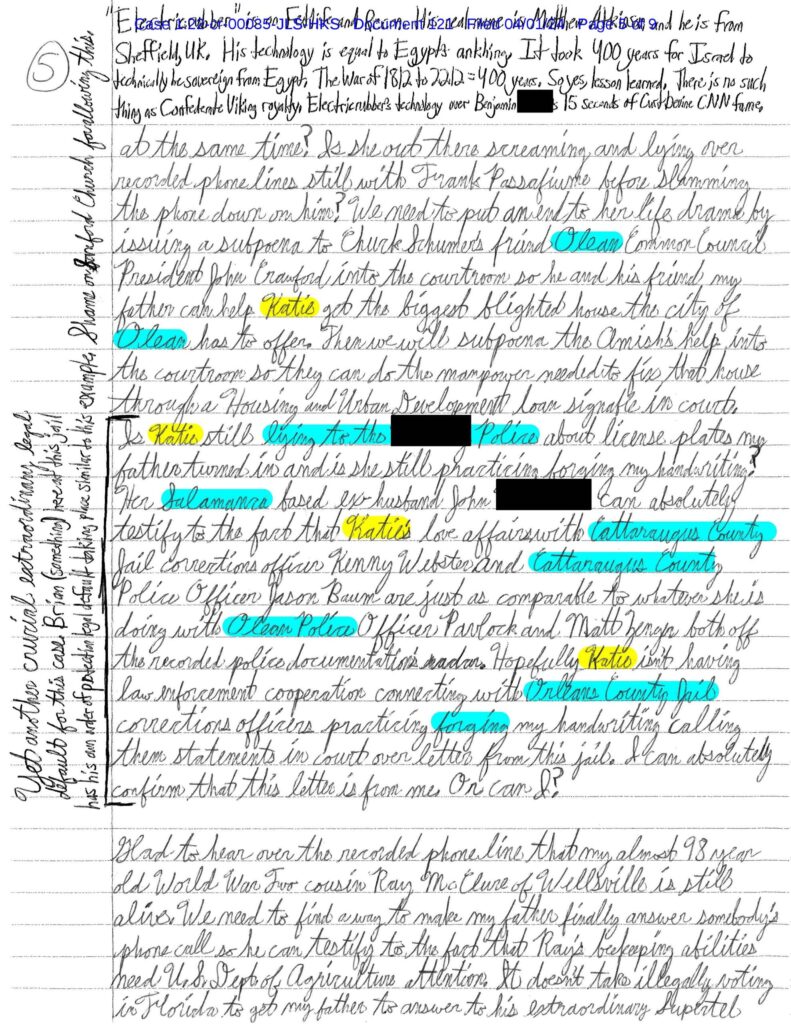 Case 1:22-cr-00085-JLS-HKS Document 121 Filed 04/01/24 Page 5 of 9
5
"Electricrubber" is an Edlif and Prem His real name is Matthew Atkinson and he is from
Sheffield, UK. His technology is equal to Egypts ankhing. It took 400 years for Israel to
technically be sovereign from Egypt. The War of 1812 to 2212 = 400 years. So yes, lesson learned. There is no such
thing as Confederate Viking royalty. Electricrubber's technology over Benjamin 's 15 seconds of CNN fame.
at the same time? Is she out there screaming and lying over
recorded phone lines still with Frank Passafiume before slamming
the phone down on him? We need to put an end to her life drama by
issuing a subpoena to Chuck Schumer's friend Olean Common Council
President John Crawford into the courtroom so he and his friend my
father can help Katie get the biggest blighted house the city of
Olean has to offer. Then we will subpoena the Amish's help into
the courtroom so they can do the manpower needed to fix that house
through a Housing and Urban Development loan signable in court.
Is Katie still lying to the Police about license plates my
father turned in and is she still practicing forging my handwriting?
Her Salamanca based ex husband John can absolutely
testify to the fact that Katie's love affairs with Cattaraugus County
Jail corrections officer Kenny Webster and Cattaraugus County
Police Officer Jason Baum are just as comparable to whatever she is
doing with Olean Police Officer Pavlock and Matt Zenger both off
the recorded police documentation radar. Hopefully Katie isn't having
law enforcement cooperation connecting with Orleans County Jail
corrections officers practicing forging my handwriting calling
them statements in court over letter from this jail. I can absolutely
confirm that this letter is from me. Or can I?
Glad to hear over the recorded phone line that my almost 98 year
old World War Two cousin Ray McClure of Wellsville is still
alive. We need to find a way to make my father finally answer somebody's
phone call so he can testify to the fact that Ray's beekeeping abilities
need U.S. Dept of Agriculture attention. It doesn't take illegally voting
in Florida to get my father to answer to his extraordinary Supertel
Yet another crucial extraordinary legal
default for this case. Brian (something) here at this jail
has his own order of protection legal default taking place similar to this example. Shame on Church for allowing this.